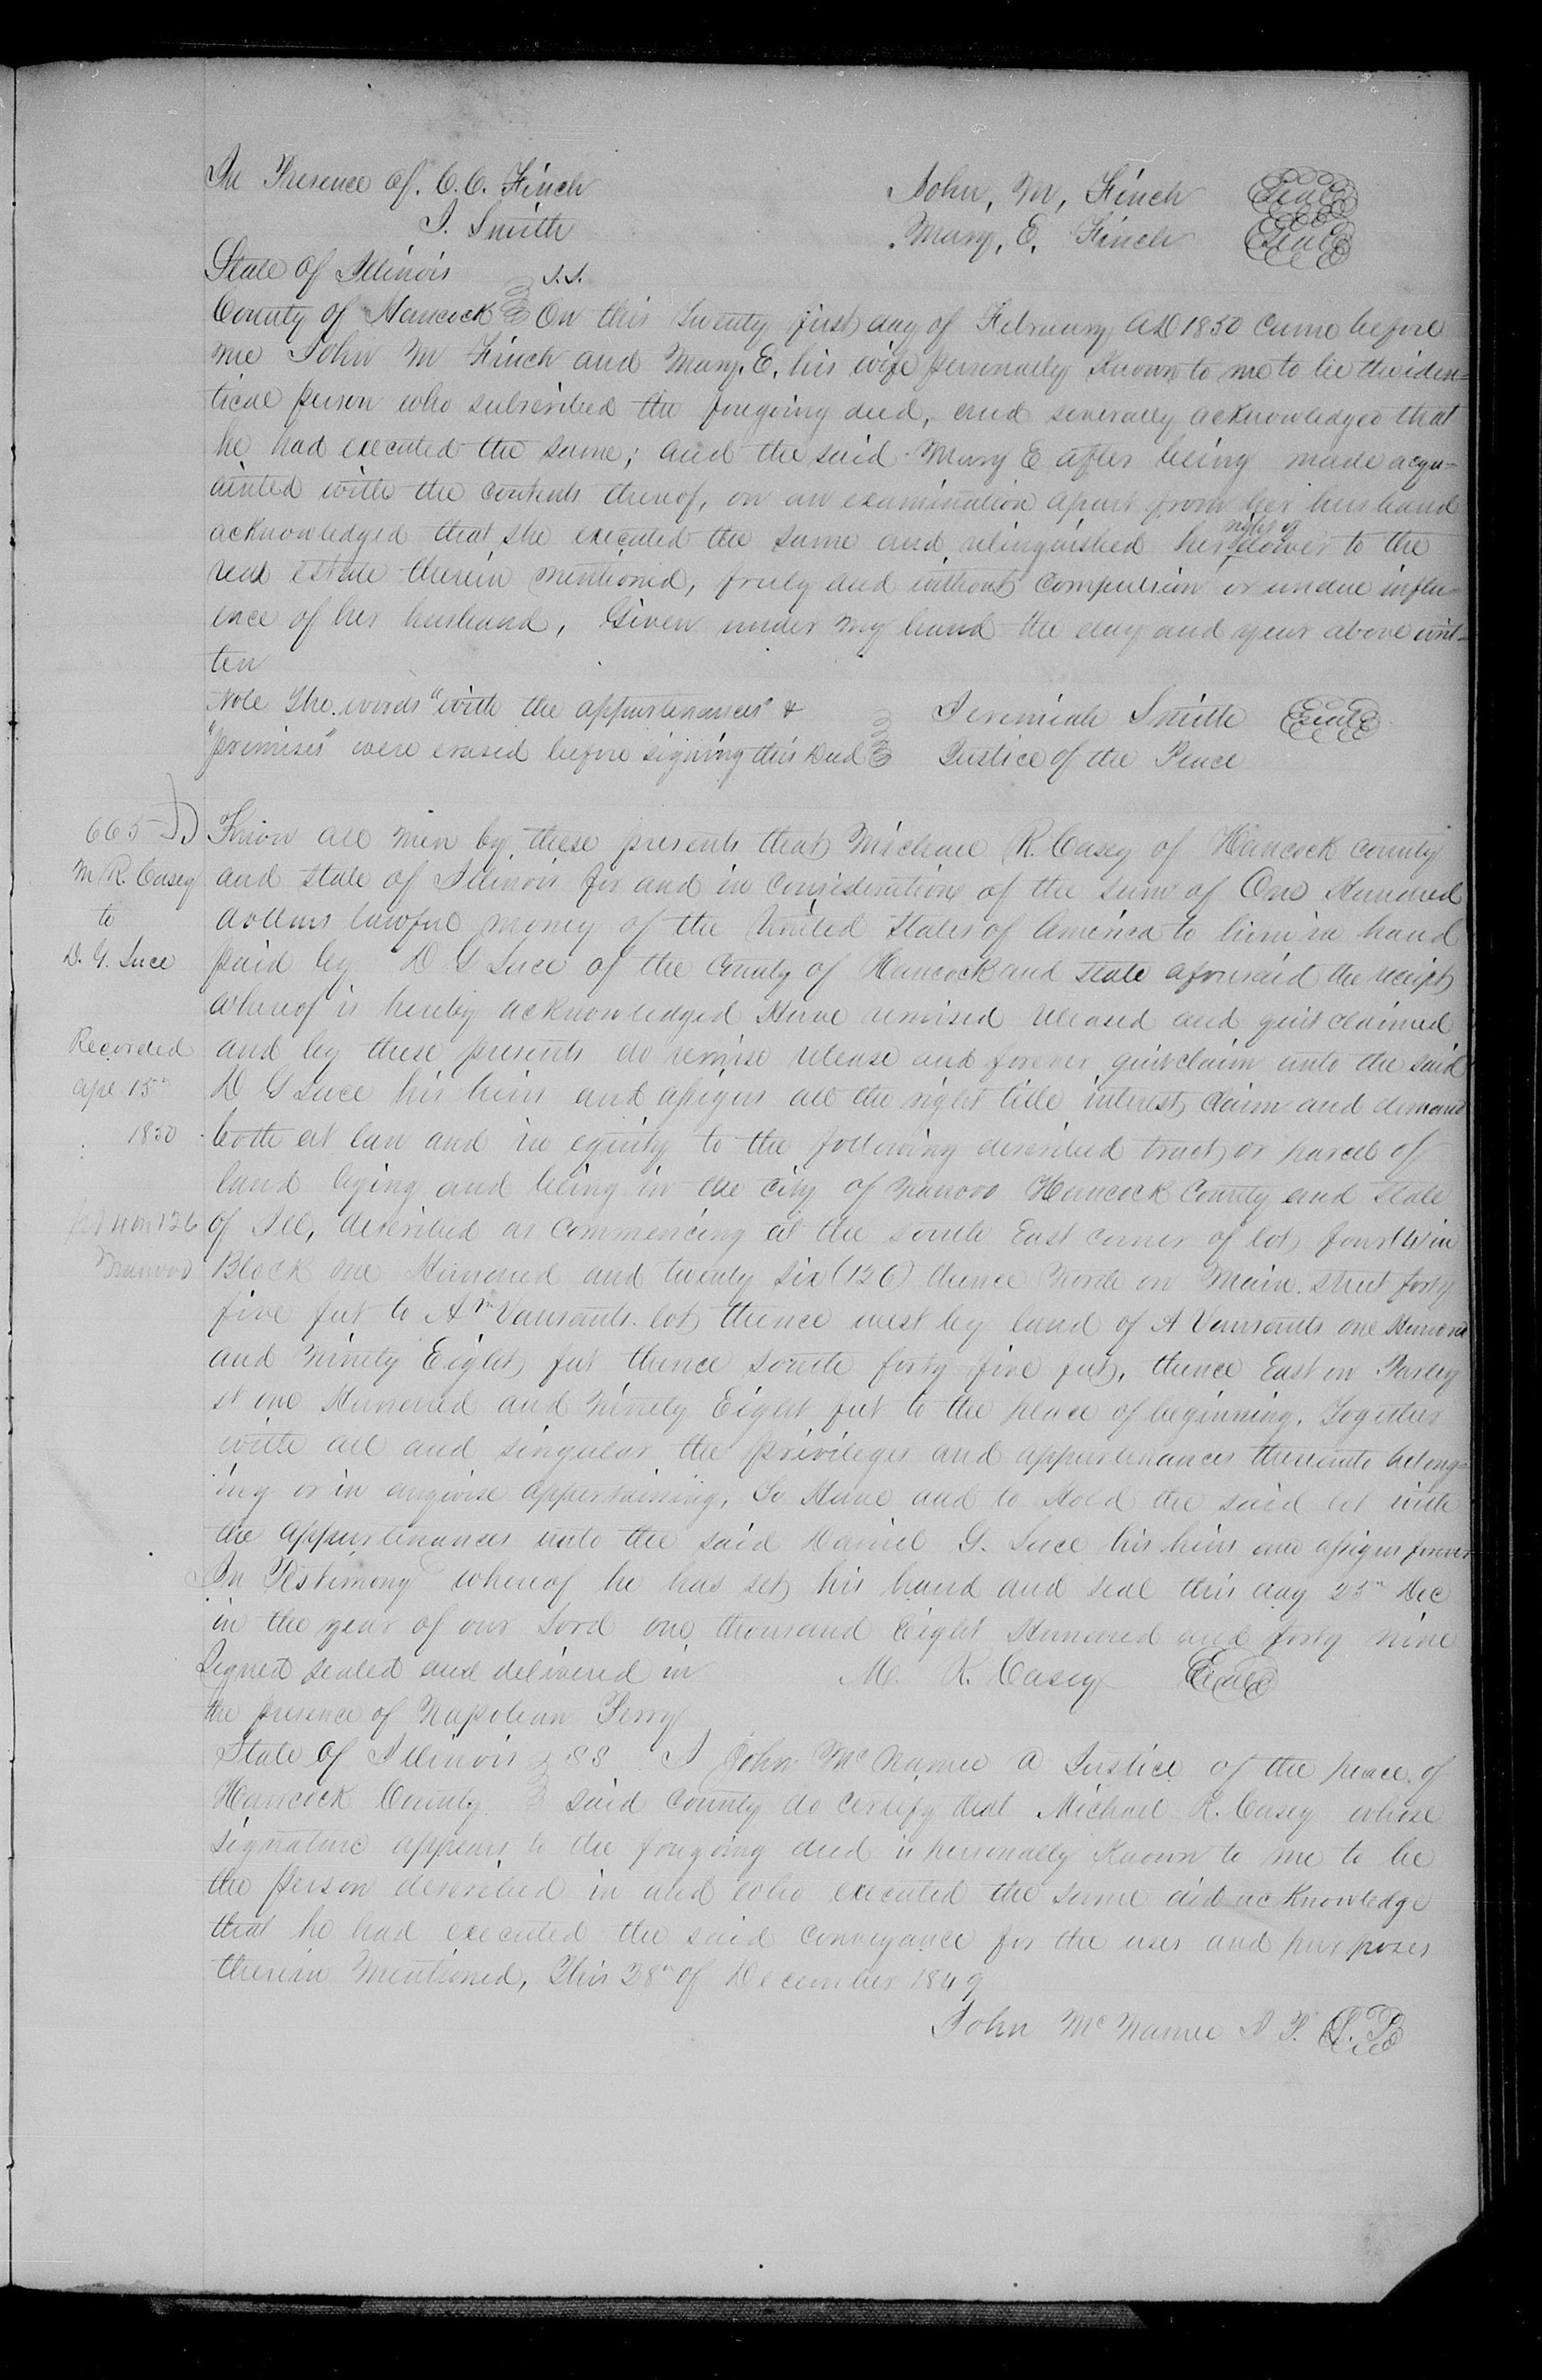 In Presence of. C. C. Finch
J. Smith
John, M, Finch Seal
Mary, E, Finch Seal
State of Illinois S.S.
County of Hancock On this twenty first day of February AD 1850 came before
me John M Finch and Mary. E. his wife personally Known to me to be the iden=
tical person who subscribed the foregoing deed, and severally acknowledged that
he had executed the same; and the said Mary E after being made acqu=
ainted with the contents thereof, on an examination apart from her husband
acknowledged that she executed the same and relinquished her right of dower to the
real estate therein mentioned, freely and without compulsion or undue influ=
ence of her husband, Given under my hand the day and year above writ=
ten
Note The words "with the appurtenances" &
"premises" were erased before signing this Deed
Jeremiah Smith Seal
Justice of the Peace
665
M R. Casey
to
D. G. Luce
Recorded
Apl 15th
1850
pt 4 on 126
Nauvoo
Know all men by these presents that Michael R. Casey of Hancock County
and State of Illinois for and in consideration of the sum of One Hundred
dollars lawful money of the United States of America to him in hand
paid by D G Luce of the County of Hancock and State aforesaid the receipt
whereof is hereby acknowledged Have remised released and quit claimed
and by these presents do remise release and forever quit claim unto the said
D G Luce his heirs and assigns all the right title interest claim and demand
both at law and in equity to the following described tract or parcel of
land lying and being in the city of Nauvoo Hancock County and State
of Ill, described as commencing at the South East corner of lot four (4) in
Block one Hundred and twenty six (126) thence North on Main street forty
five feet to A Vansants lot thence west by land of A Vansants one Hundred
and Ninety Eight feet thence South forty five feet, thence East on Parley
st one Hundred and Ninety Eight feet to the place of beginning. Together
with all and singular the privileges and appurtenances thereunto belong=
ing or in anywise appertaining, To Have and to Hold the said lot with
the Appurtenances unto the said Daniel G. Luce his heirs and assigns forever
In Testimony whereof he has set his hand and seal this day 25th Dec
in the year of our Lord one thousand Eight Hundred and forty nine
Signed sealed and delivered in M. R. Casey Seal
the presence of Napolean Perry
State of Illinois SS I John McNamee a Justice of the peace of
Hancock County said County do certify that Michael R. Casey whose
signature appears to the foregoing deed is personally Known to me to be
the person described in and who executed the same did acKnowledge
that he had executed the said conveyance for the uses and purposes
therein mentioned, This 28th of December 1849
John McNamee J P.